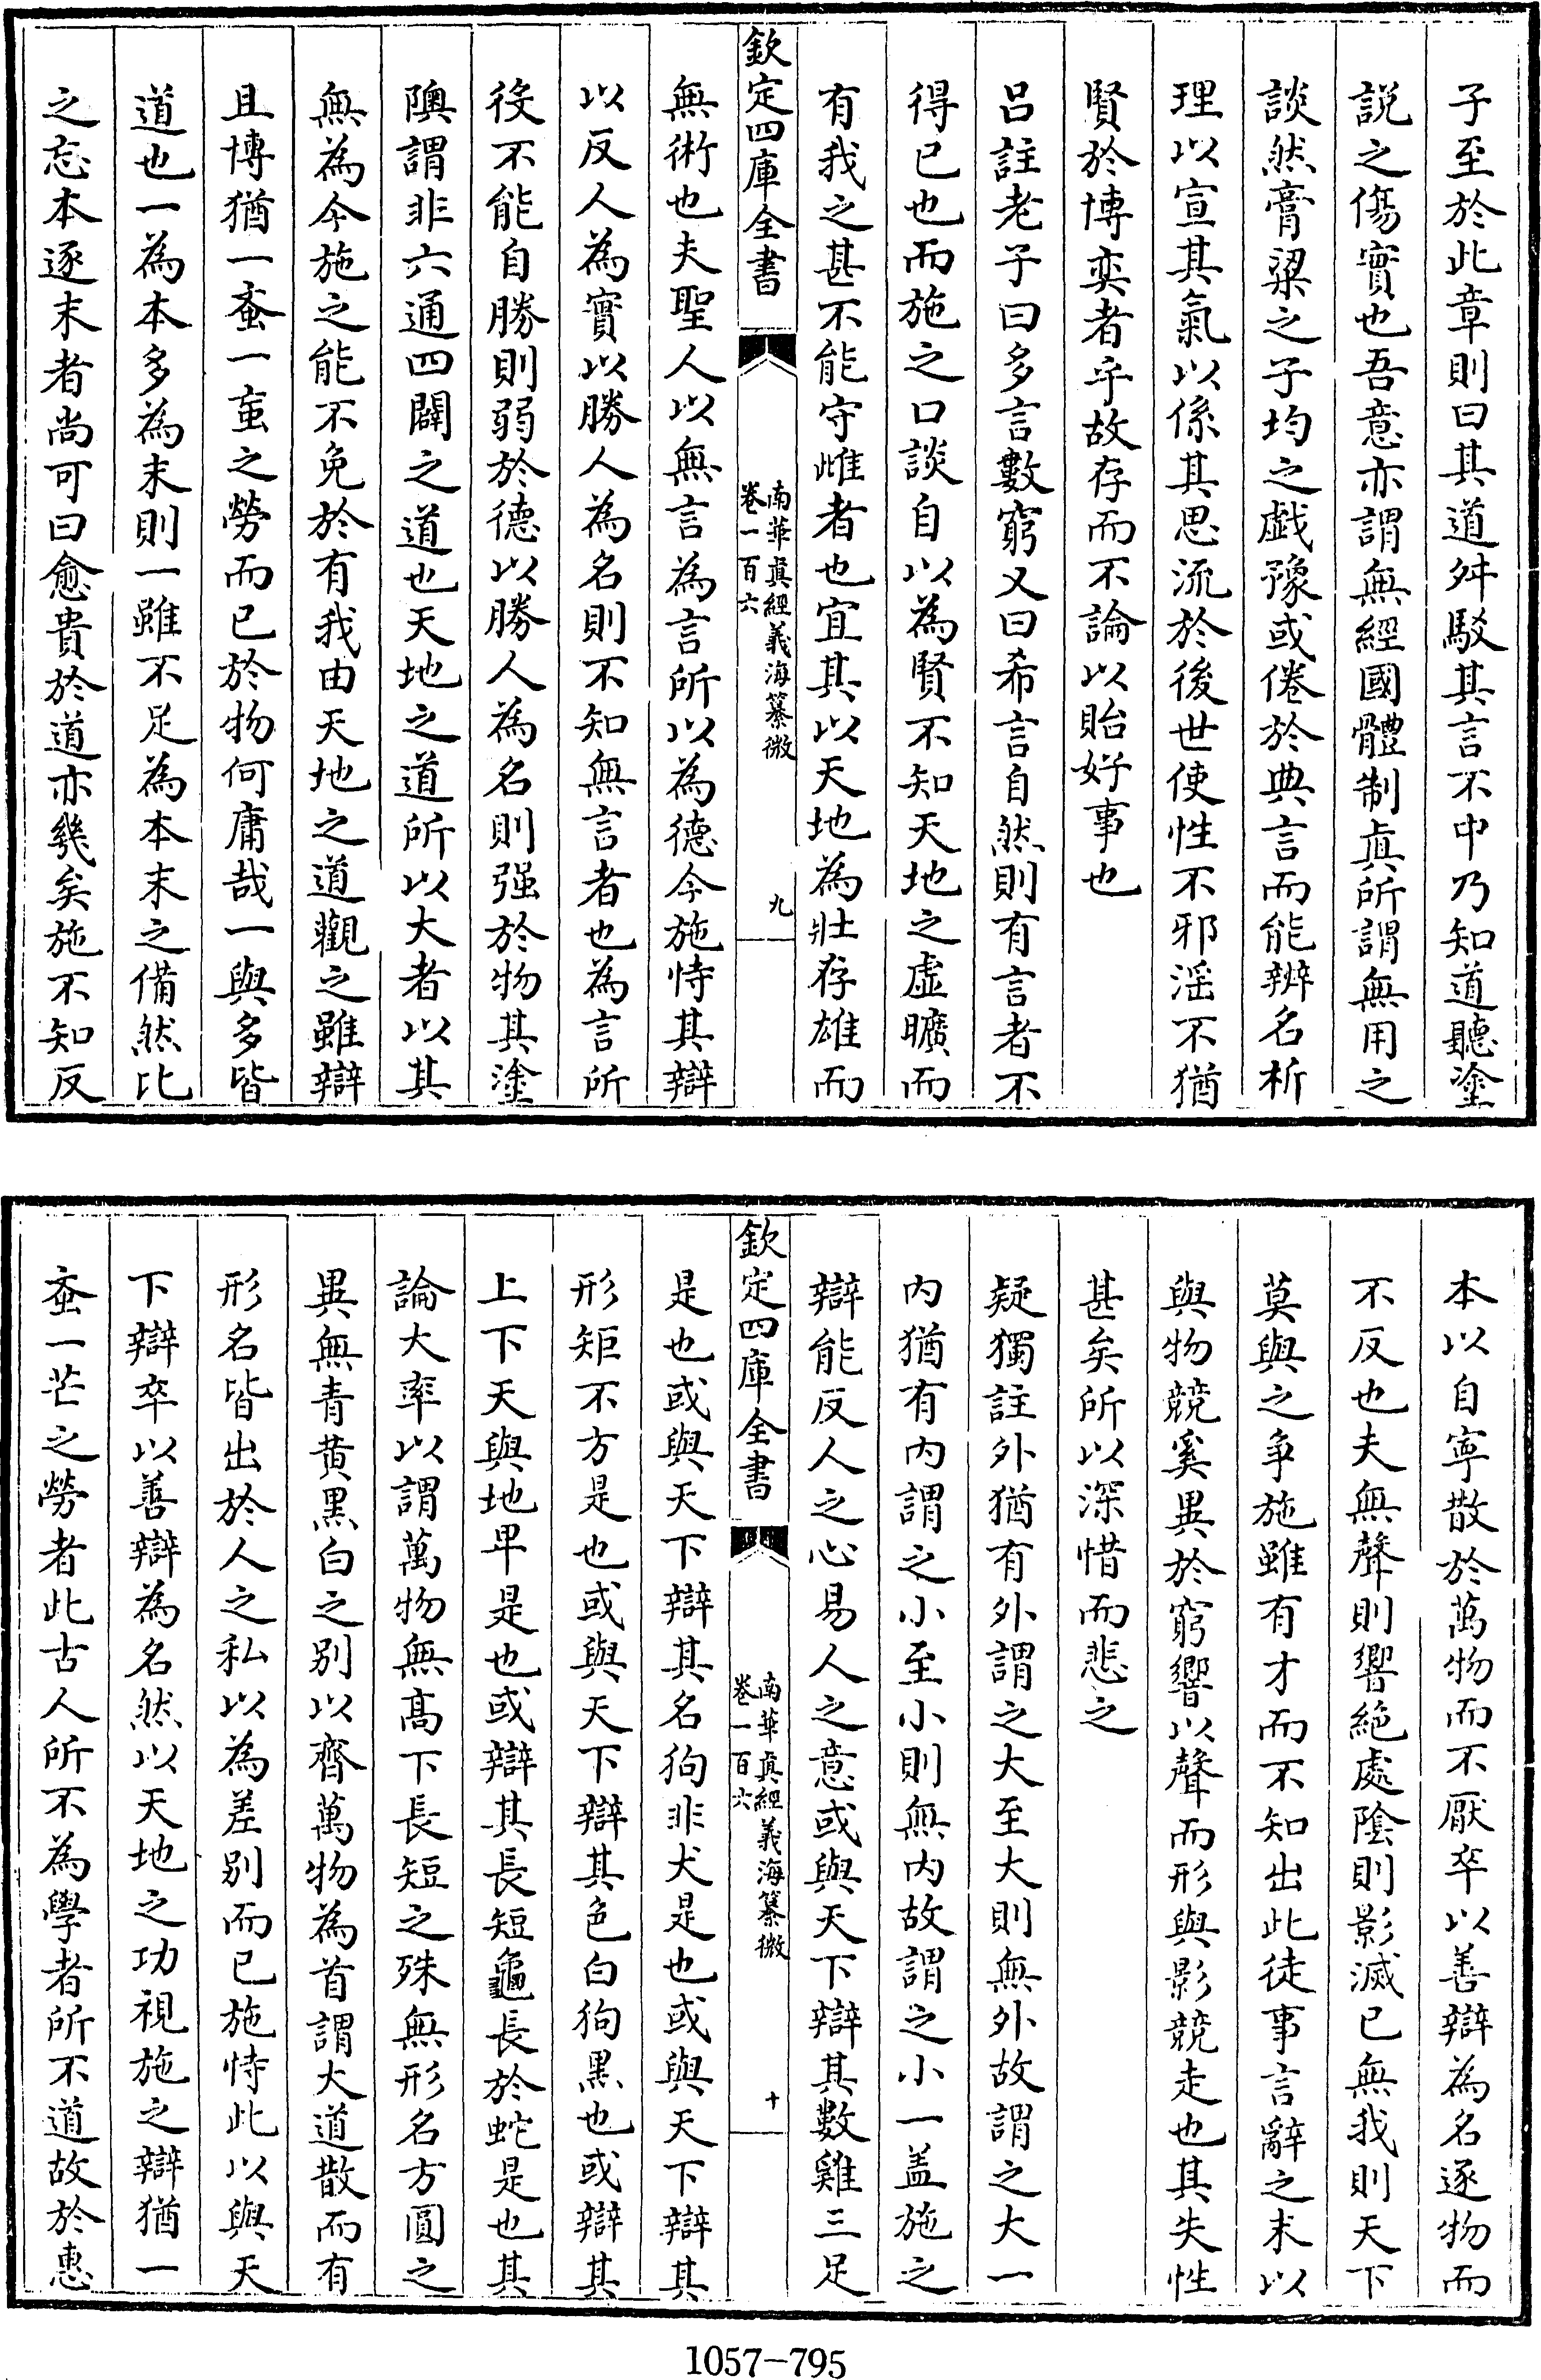 子至於此章則曰其道舛駁其言不中乃知道聽塗
説之傷實也吾意亦謂無經國體制真所謂無用之
談然膏粱之子均之戲豫或倦於典言而能辨名析
理以宣其氣以係其思流於後世使性不邪淫不猶
賢於博奕者乎故存而不論以貽好事也
吕註老子曰多言數窮又曰希言自然則有言者不
得已也而施之口談自以為賢不知天地之虚曠而
有我之甚不能守雌者也宜其以天地為壯存雄而
欽定四庫全書
南華真經義海纂微
卷一百六
九
無術也夫聖人以無言為言所以為德今施恃其辯
以反人為實以勝人為名則不知無言者也為言所
役不能自勝則弱於德以勝人為名則强於物其塗
隩謂非六通四闢之道也天地之道所以大者以其
無為今施之能不免於有我由天地之道觀之雖辯
且博猶一蚉一䖟之勞而已於物何庸哉一與多皆
道也一為本多為末則一雖不足為本末之備然比
之忘本逐末者尚可曰愈貴於道亦幾矣施不知反
本以自寧散於萬物而不厭卒以善辯為名逐物而
不反也夫無聲則響絶處陰則影滅已無我則天下
莫與之爭施雖有才而不知出此徒事言辭之末以
與物競奚異於窮響以聲而形與影競走也其失性
甚矣所以深惜而悲之
疑獨註外猶有外謂之大至大則無外故謂之大一
内猶有内謂之小至小則無内故謂之小一盖施之
辯能反人之心易人之意或與天下辯其數雞三足
欽定四庫全書
南華真經義海纂微
卷一百六
十
是也或與天下辯其名狗非犬是也或與天下辯其
形矩不方是也或與天下辯其色白狗黑也或辯其
上下天與地卑是也或辯其長短龜長於蛇是也其
論大率以謂萬物無高下長短之殊無形名方圓之
異無青黄黑白之别以齊萬物為首謂大道散而有
形名皆出於人之私以為差别而已施恃此以與天
下辯卒以善辯為名然以天地之功視施之辯猶一
蚉一芒之勞者此古人所不為學者所不道故於惠
1057-795